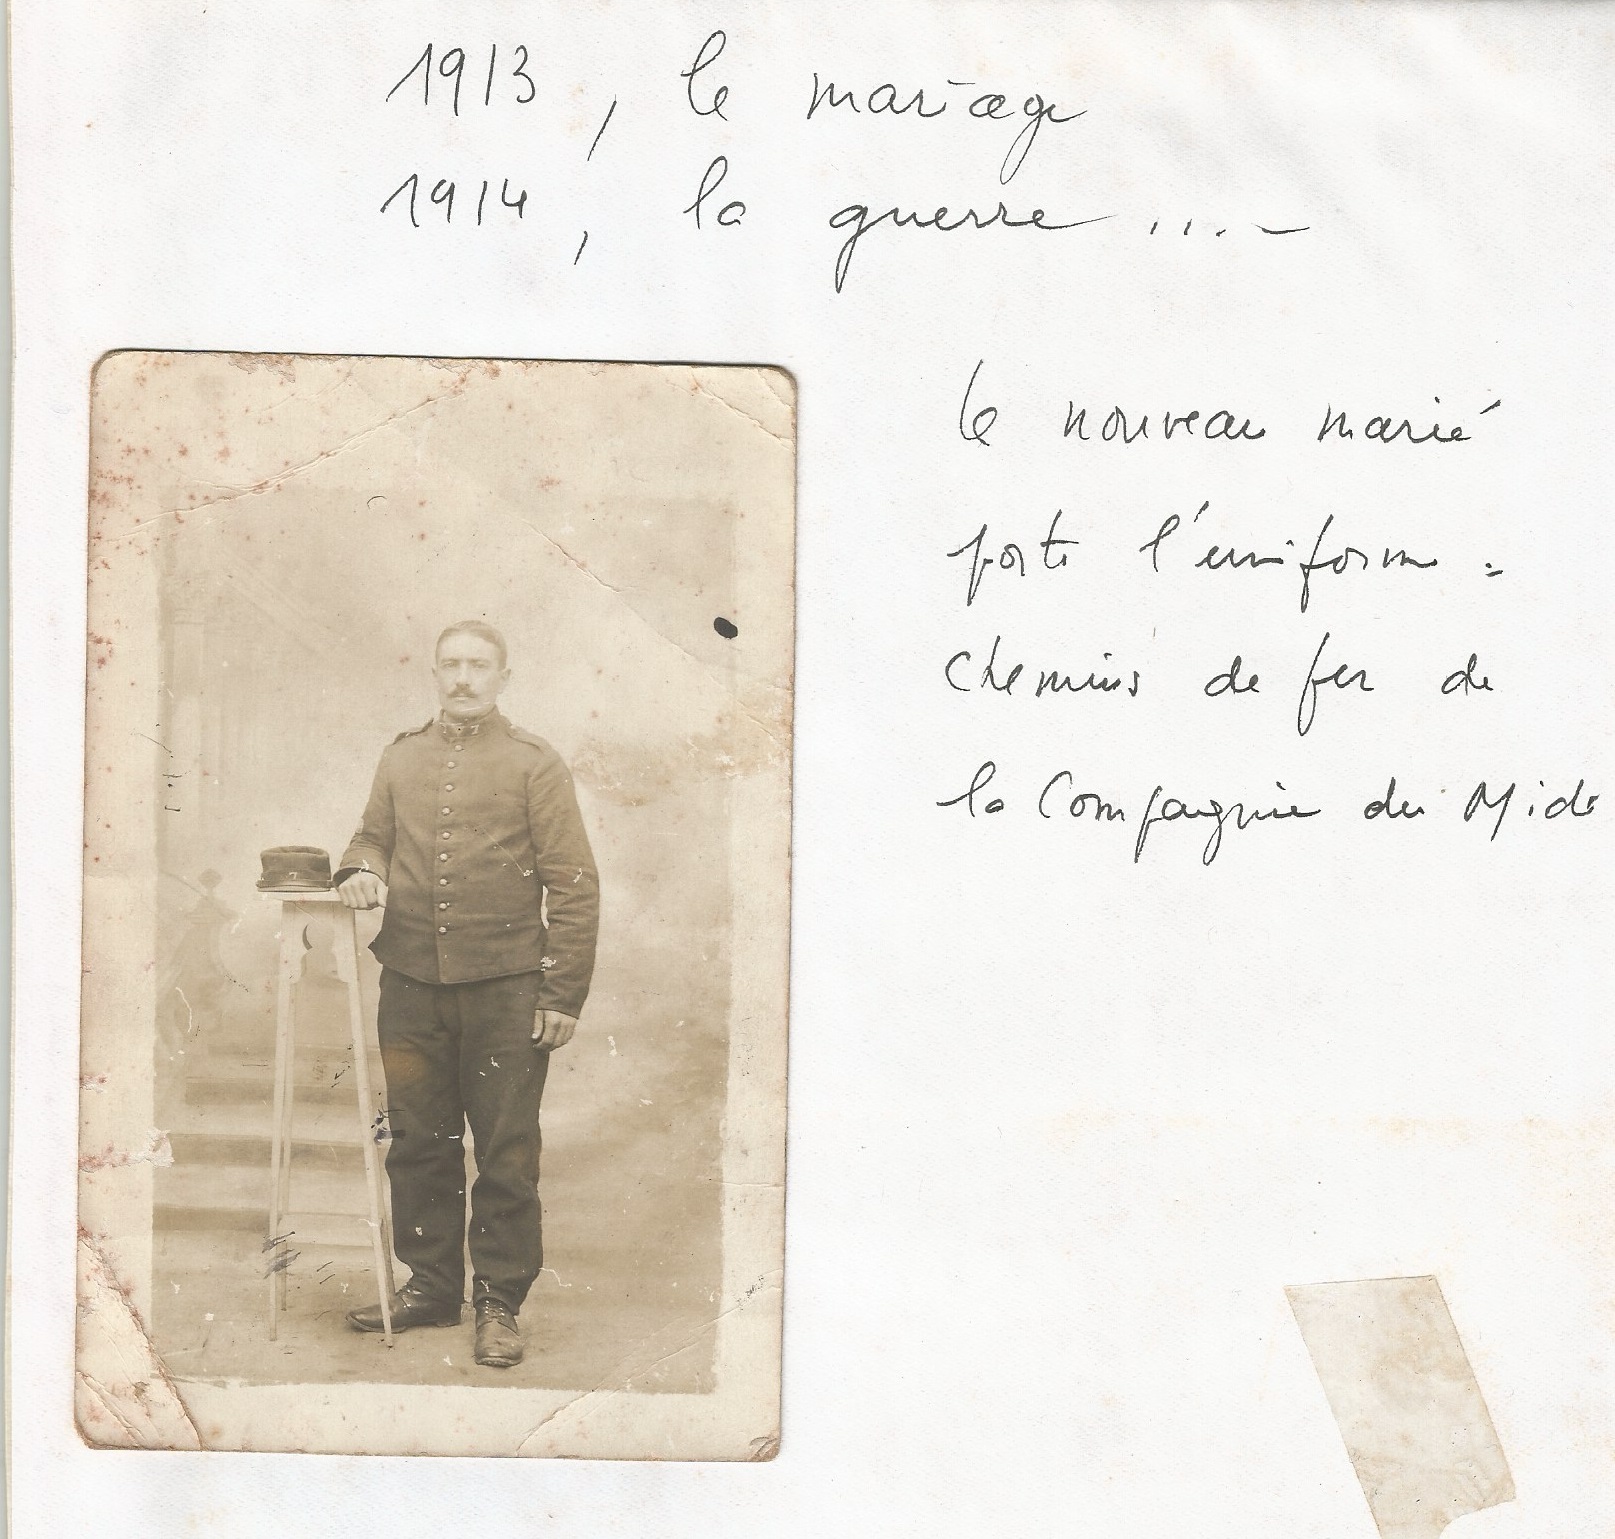 1913, le mariage
1914, la guerre ....
Le nouveau marié
porte l'uniforme :
Chemins de fer de
la Compagnie du Midi
7
7